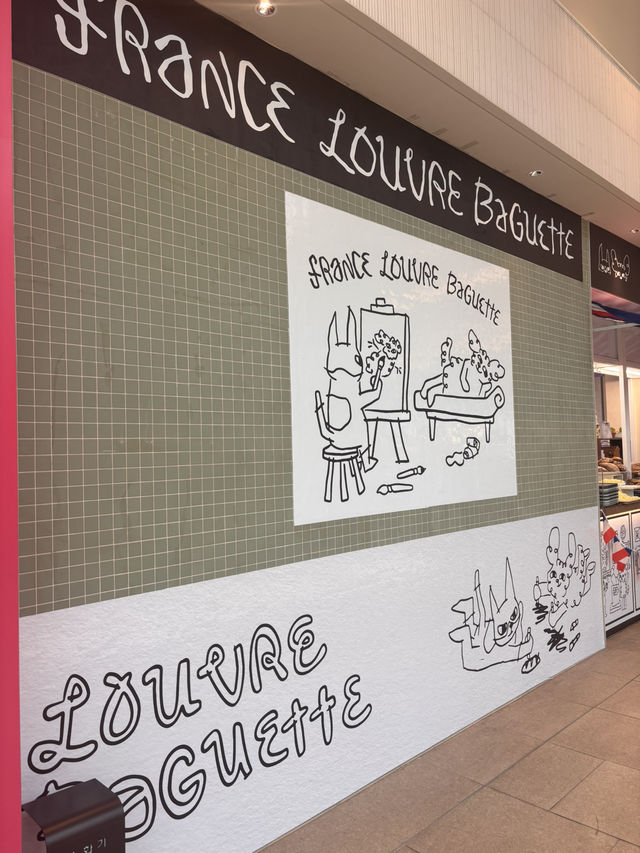 fRaNCE LOUVRE BaGUEttE
fRaNCE LOUVRE BaGUEttE
LOUVRE
BaGUEttE